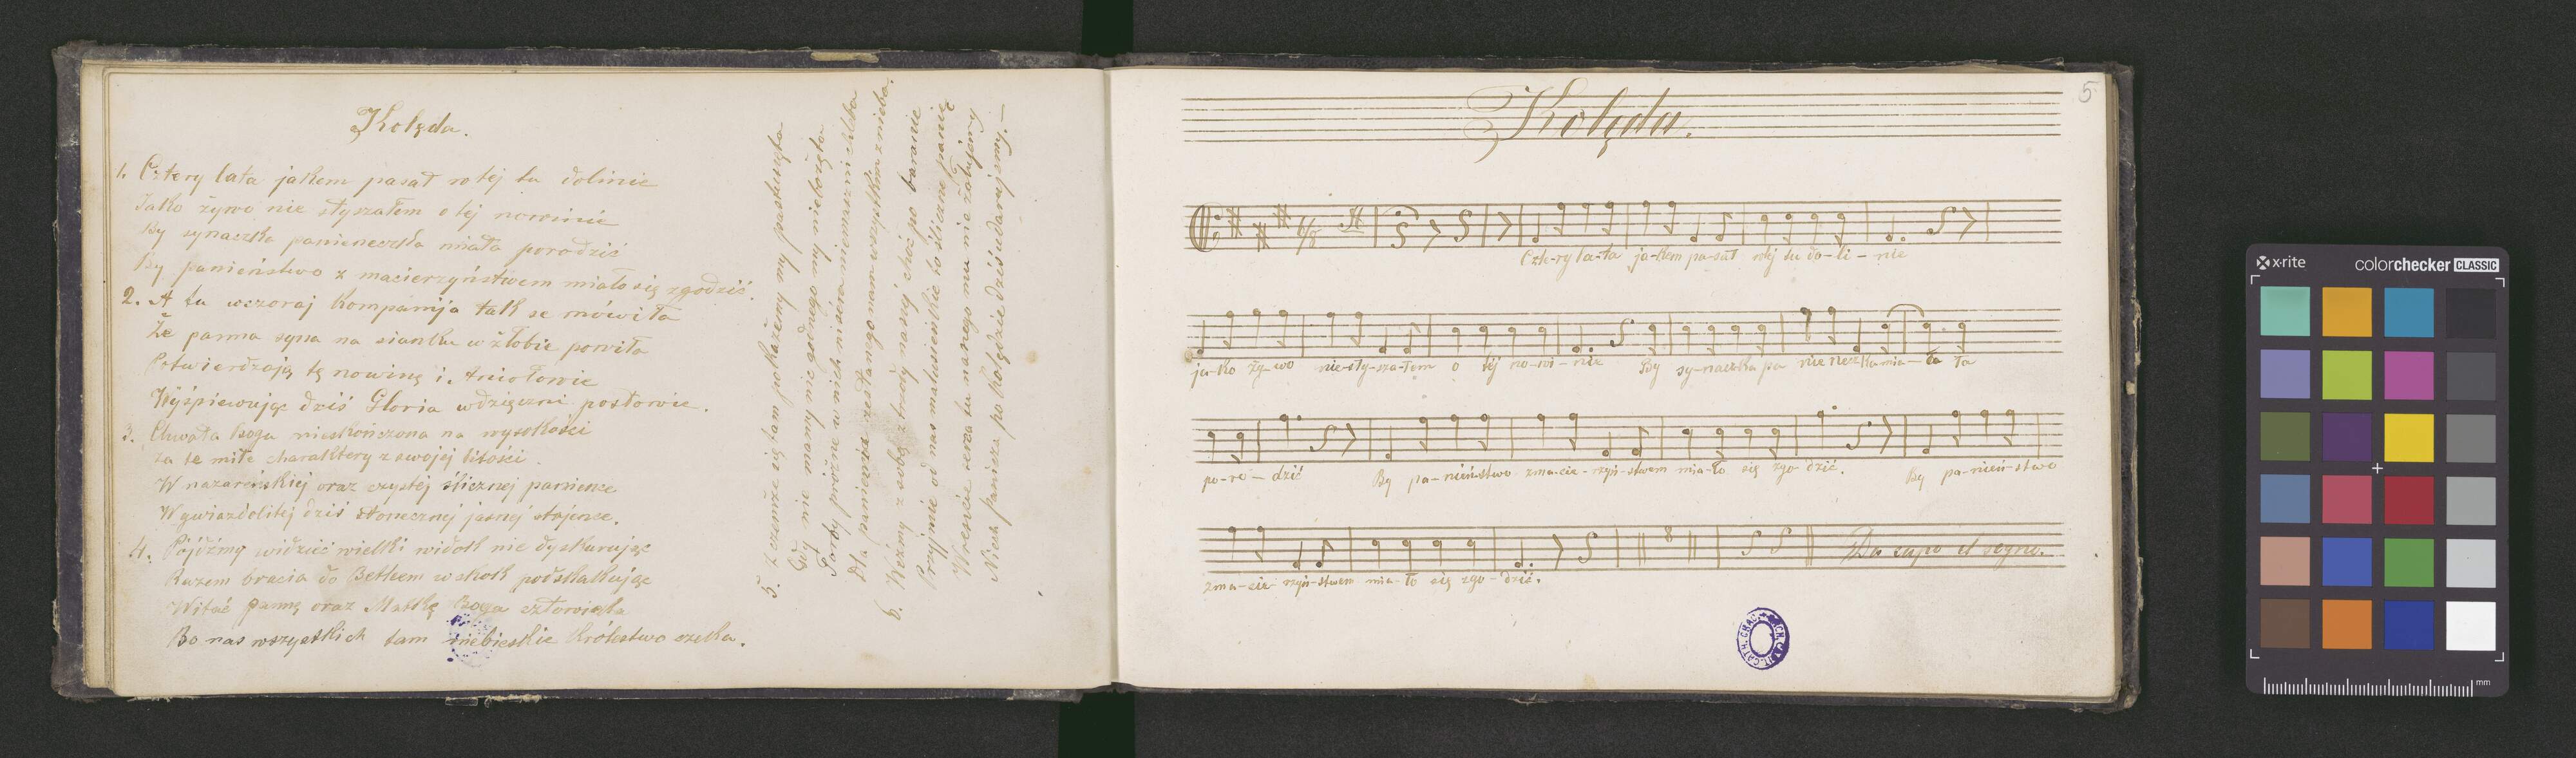 Kolęda.
1. Cztery lata jakem pasał w tej tu dolinie
Jako żywo nie słyszałem o tej nowinie
By synaczka panieneczka miała porodzić
By panieństwo z macierzyństwem miało się zgodzić.
2. A tu wczoraj kompanija tak se mówiła
Że panna syna na sianku w żłobie powiła
Potwierdzają tę nowinę i Aniołowie
Wyśpiewując dziś Gloria wdzięczni posłowie.
3. Chwała Bogu nieskończona na wysokości
za te miłe charaktery z swojej litości.
W nazareńskiej oraz czystej ślicznej panience
W gwiazdolitej dziś słonecznej jasnej stajence.
4. Pójdźmy widzieć wielki widok nie dyskurując
Razem bracia do Betleem w skok podskakując
Witać pannę oraz Matkę Boga człowieka
Bo nas wszystkich tam niebieskie Królestwo czeka.
5. Z czemże się tam pokażemy my pastuszęta
Gdy nie mamy nic godnego my niebożęta
Torby próżne w nich niesiema chleba
Dla panięcia zesłanego nam wszystkim z nieba.
6. Weźmy z sobą z trzody naszej choć po baranie
Przyjmie od nas malusieńkie to śliczne panie
Wreszcie serca tu naszego mu nie żałujmy
Niech panisza po kolędzie dziś udarujemy.—
5
Kolęda.
Czte-ry la-ta ja-kem pa-sał wtej tu do-li-nie
ja-ko ży-wo nie-sły-sza-łem o tej no-wi-nie By sy-naczka pa nie necz-ka mia-ła ła
po-ro-dzić By pa-nieństwo zma-cie-rzyń-stwem mia-ło się zgo-dzić. By pa-nień-stwo
zma-cie-rzyń-stwem mia-ło się zgo-dzić.
Da capo al segno.
x-rite colorchecker CLASSIC
mm